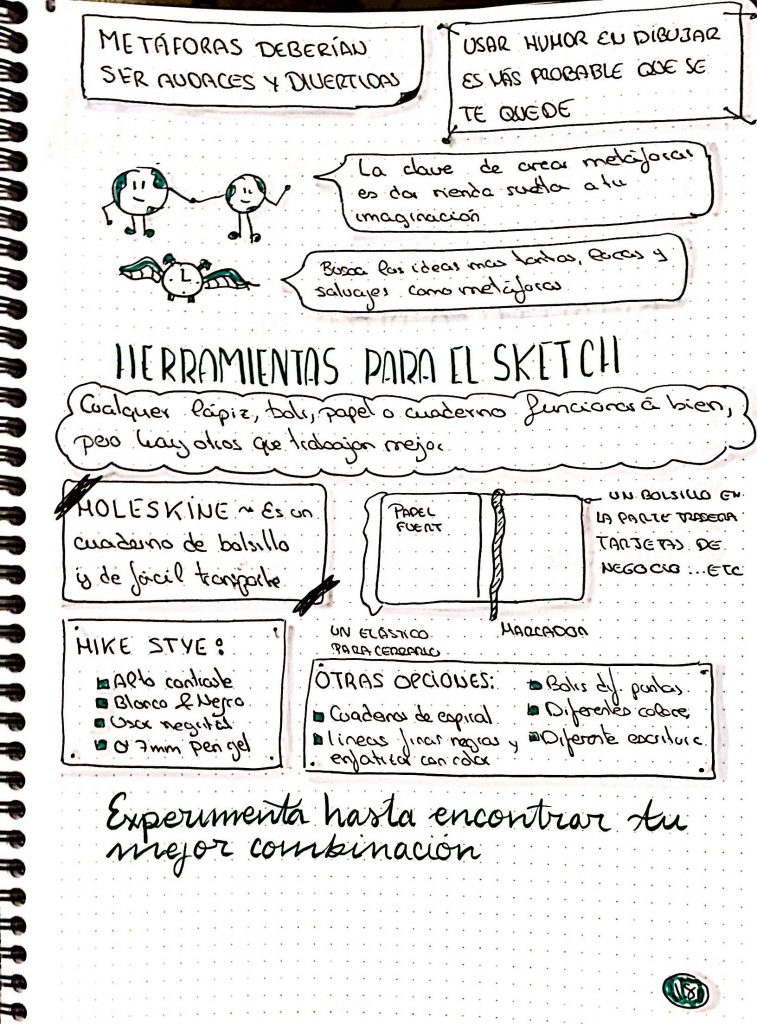 METÁFORAS DEBERÍAN
SER AUDACES Y DIVERTIDAS
USAR HUMOR EN DIBUJAR
ES MÁS PROBABLE QUE SE
TE QUEDE
La clave de crear metáforas
es dar rienda suelta a tu
imaginación
Busca las ideas mas tontas, locas y
salvajes como metáforas
L
HERRAMIENTAS PARA EL SKETCH
Cualquer lápiz, boli, papel o cuaderno funcionará bien,
pero hay otros que trabajan mejor.
MOLESKINE ~ Es un
cuaderno de bolsillo
y de fácil transporte
PAPEL
FUERT
UN BOLSILLO EN
LA PARTE TRASERA
TARJETAS DE
NEGOCIO...ETC
UN ELÁSTICO
PARA CERRARLO
MARCADOR
MIKE STYE:
Alto contraste
Blanco & Negro
Usar negrita
0'7mm pen gel
OTRAS OPCIONES:
Cuaderno de espiral
líneas finas negras y
enfatizar con color
Bolis dif. puntas
Diferentes colores
Diferente escritura
Experimenta hasta encontrar tu
mejor combinación
18